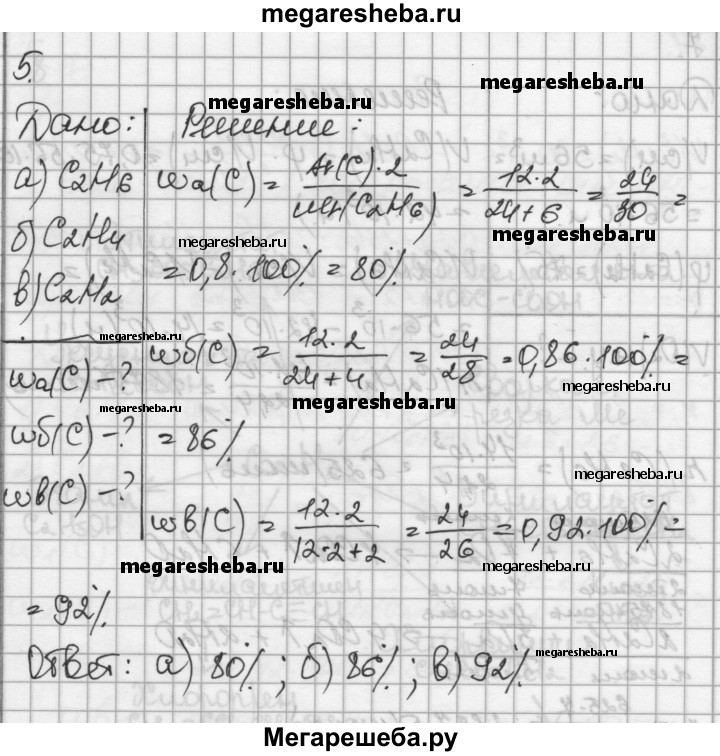 megaresheba.ru
5.
megaresheba.ru
Дано: Решение:
а) C2H6 wа(C) = Ar(C)·2 / Mr(C2H6) = 12·2 / 24+6 = 24/30 =
megaresheba.ru megaresheba.ru
б) C2H4 = 0,8·100% = 80%.
в) C2H2
megaresheba.ru
wа(C) - ? wб(C) = 12·2 / 24+4 = 24/28 = 0,86·100% =
megaresheba.ru
megaresheba.ru megaresheba.ru
wб(C) - ? = 86%
megaresheba.ru
wв(C) - ? wв(C) = 12·2 / 12·2+2 = 24/26 = 0,92·100% =
megaresheba.ru megaresheba.ru
= 92%
Ответ: а) 80%; б) 86%; в) 92%.
megaresheba.ru
Мегарешеба.ру